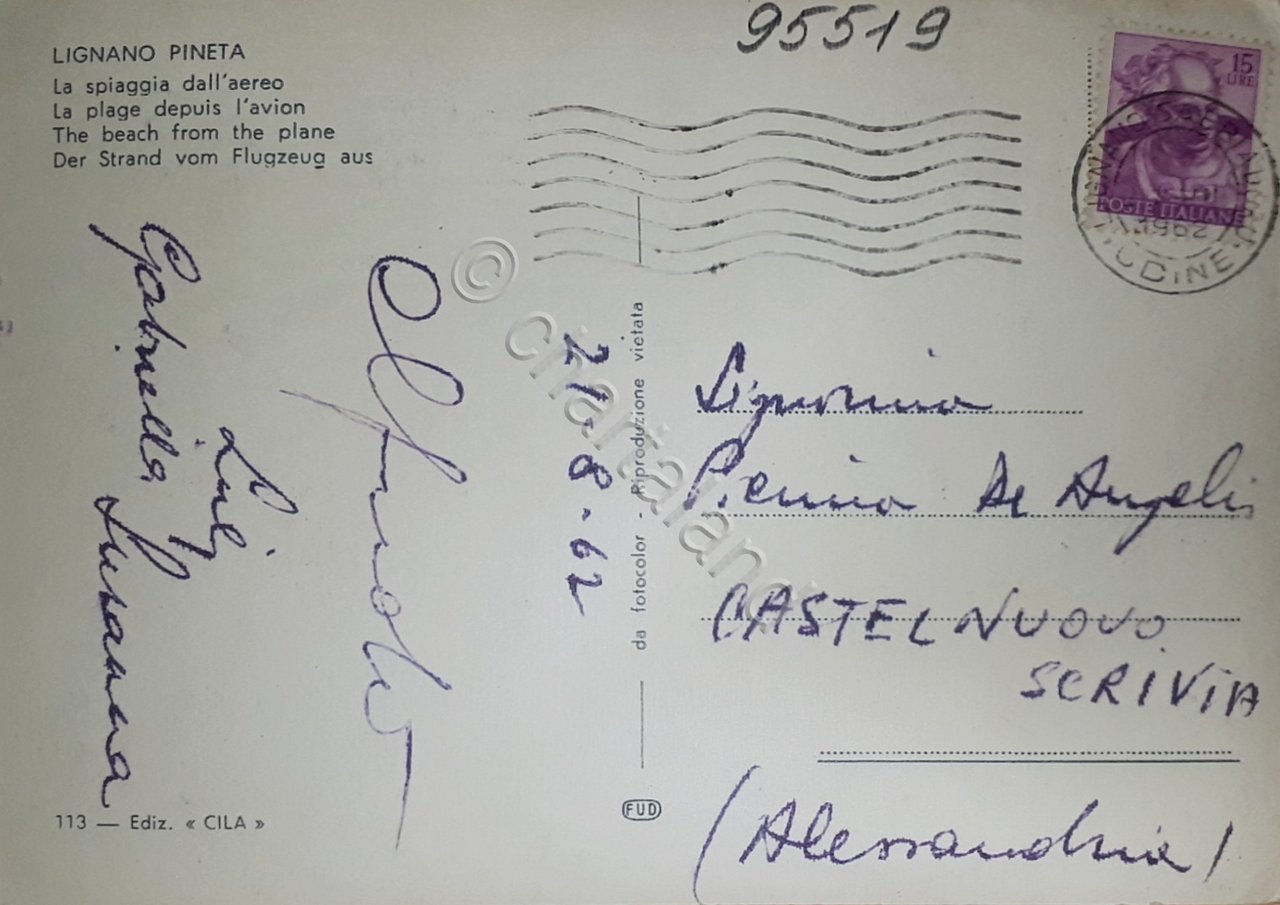 95519
LIGNANO PINETA
La spiaggia dall'aereo
La plage depuis l'avion
The beach from the plane
Der Strand vom Flugzeug aus
15
LIRE
POSTE ITALIANE
1962
UDINE
Gabriella
Luig
Susanna
21-8-62
da fotocolor - Riproduzione vietata
Signorina
Pierina De Angelis
CASTELNUOVO
SCRIVIA
(Alessandria)
113 — Ediz. « CILA »
FUD
© chartaland